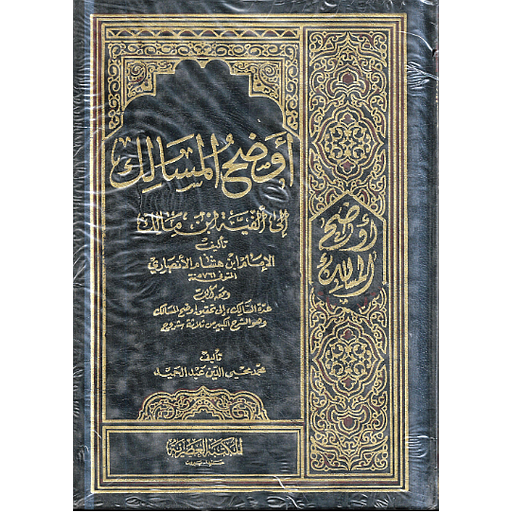 أوضح المسالك
إلى ألفية ابن مالك
تأليف
الإمام ابن هشام الأنصاري
المتوفى ٧٦١ سنة
ومعه كتاب
عدة السالك، إلى تحقيق أوضح المسالك
وهو الشرح الكبير من ثلاثة شروح
تأليف
محمد محيي الدين عبد الحميد
المكتبة العصرية
صيدا - بيروت
أوضح
المسالك